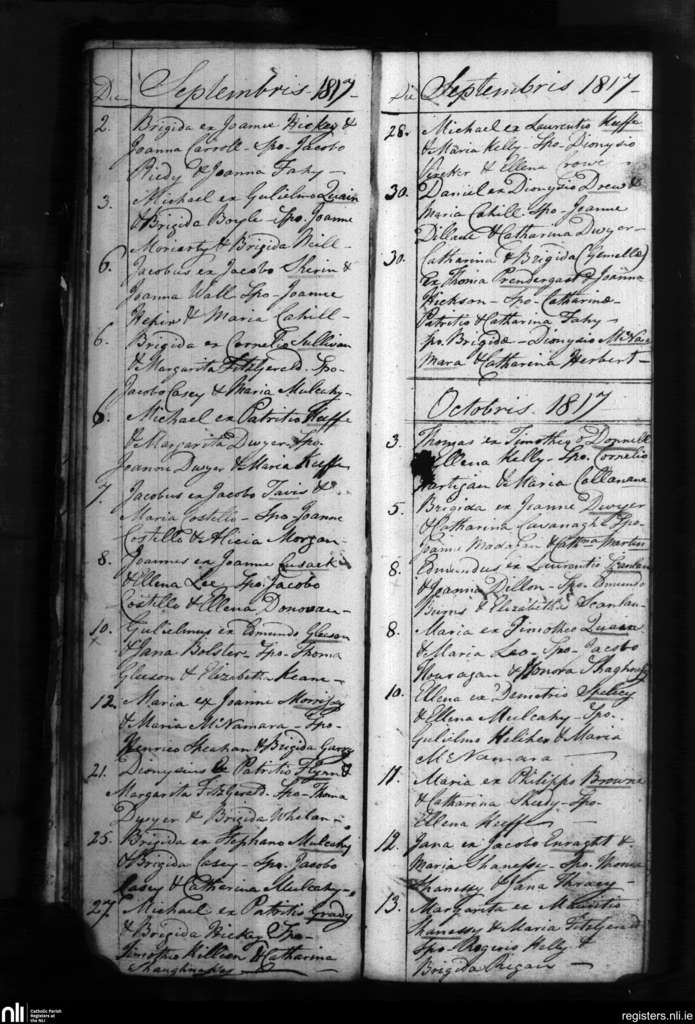 Die Septembris 1817
2. Brigida ex Joanne Hickey &
Joanna Carroll - Spo. Jacobo
Ridy & Joanna Fahy -
3. Michael ex Gulielmo Quain
& Brigida Boyle Spo. Joanne
Moriarty & Brigida Neill -
6. Jacobus ex Jacobo Sherin &
Joanna Wall Spo - Joanne
& Maria Cahill -
6. Brigida ex Cornelio Sullivan
& Margarita Fitzgerald. Spo -
Jacobo Casey & Maria Mulcahy -
6. Michael ex Patritio Keeffe
& Margarita Dwyer Spo.
Joanne Dwyer & Maria Keeffe
7. Jacobus ex Jacobo &
Maria Costello - Spo - Joanne
Costello & Alicia Morgan -
8. Joannes ex Joanne Cusack
& Ellena Lee - Spo. Jacobo
Costello & Ellena Donovan -
10. Gulielmus ex Edmundo Gleeson
& Jana Bolster - Spo - Thoma
Gleeson & Elizabeth Keane -
12. Maria ex Joanne Morrissy
& Maria McNamara - Spo -
Henrico Sheahan & Brigida Garry
21. Dionysius ex Patritio Flynn &
Margarita Fitzgerald. Spo - Thoma
Dwyer & Brigida Whelan -
25. Brigida ex Stephano Mulcahy
& Brigida Casey - Spo. Jacobo
Casey & Catharina Mulcahy -
27. Michael ex Patritio Grady
& Brigida Hickey Spo -
Timotheo Killeen & Catharina
Shaughnessy
Die Septembris 1817 -
28. Michael ex Laurentio Keeffe
& Maria Kelly - Spo - Dionysio
& Ellena Crowe -
30. Daniel ex Dionysio Drew &
Maria Cahill - Spo - Joanne
Dillane & Catharina Dwyer -
30. Catharina & Brigida (Gemellae)
ex Thoma Prendergast & Joanna
Hickson - Spo - Catharinae -
Patritio & Catharina Fahy -
Spo. Brigidae - Dionysio McNa
mara & Catharina Herbert -
Octobris. 1817
3. Thomas ex Timotheo O Donnell
& Ellena Kelly - Spo. Cornelio
Hartigan & Maria Callanane
5. Brigida ex Joanne Dwyer
& Catharina Cavanagh Spo -
Joanne Madigan & Cathna Martin
8. Edmundus ex Laurentio Scanlan
& Joanna Dillon - Spo - Edmundo
Burns & Elizabetha Scanlan -
8. Maria ex Timotheo Quain
& Maria Leo - Spo - Jacobo
Houragan & Honora
10. Ellena ex Demetrio
& Ellena Mulcahy - Spo.
Gulielmo Heliher & Maria
McNamara -
11. Maria ex Philippo Browne
& Catharina Sheehy - Spo -
Ellena Keeffe -
12. Jana ex Jacobo Enraght &
Maria Shanessy - Spo. Thoma
Shanessy & Jana
13. Margarita ex Mauritio
Shanessy & Maria Fitzgerald
Spo - Rogerio Kelly &
Brigida Regan -
nli Catholic Parish Registers at the NLI
registers.nli.ie